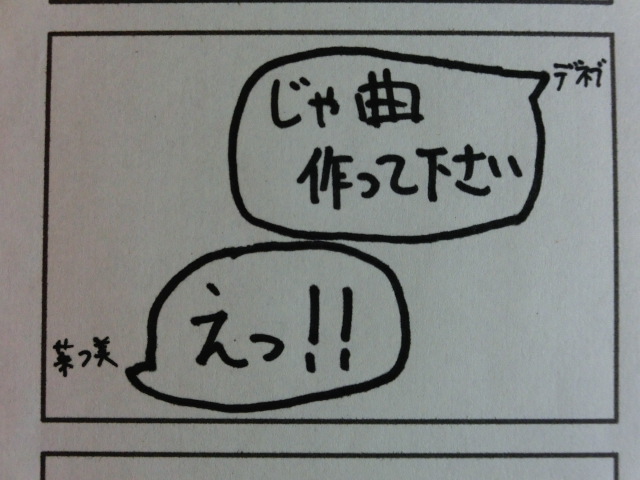 デネブ
じゃ曲
作って下さい
菜つ美
えっ!!